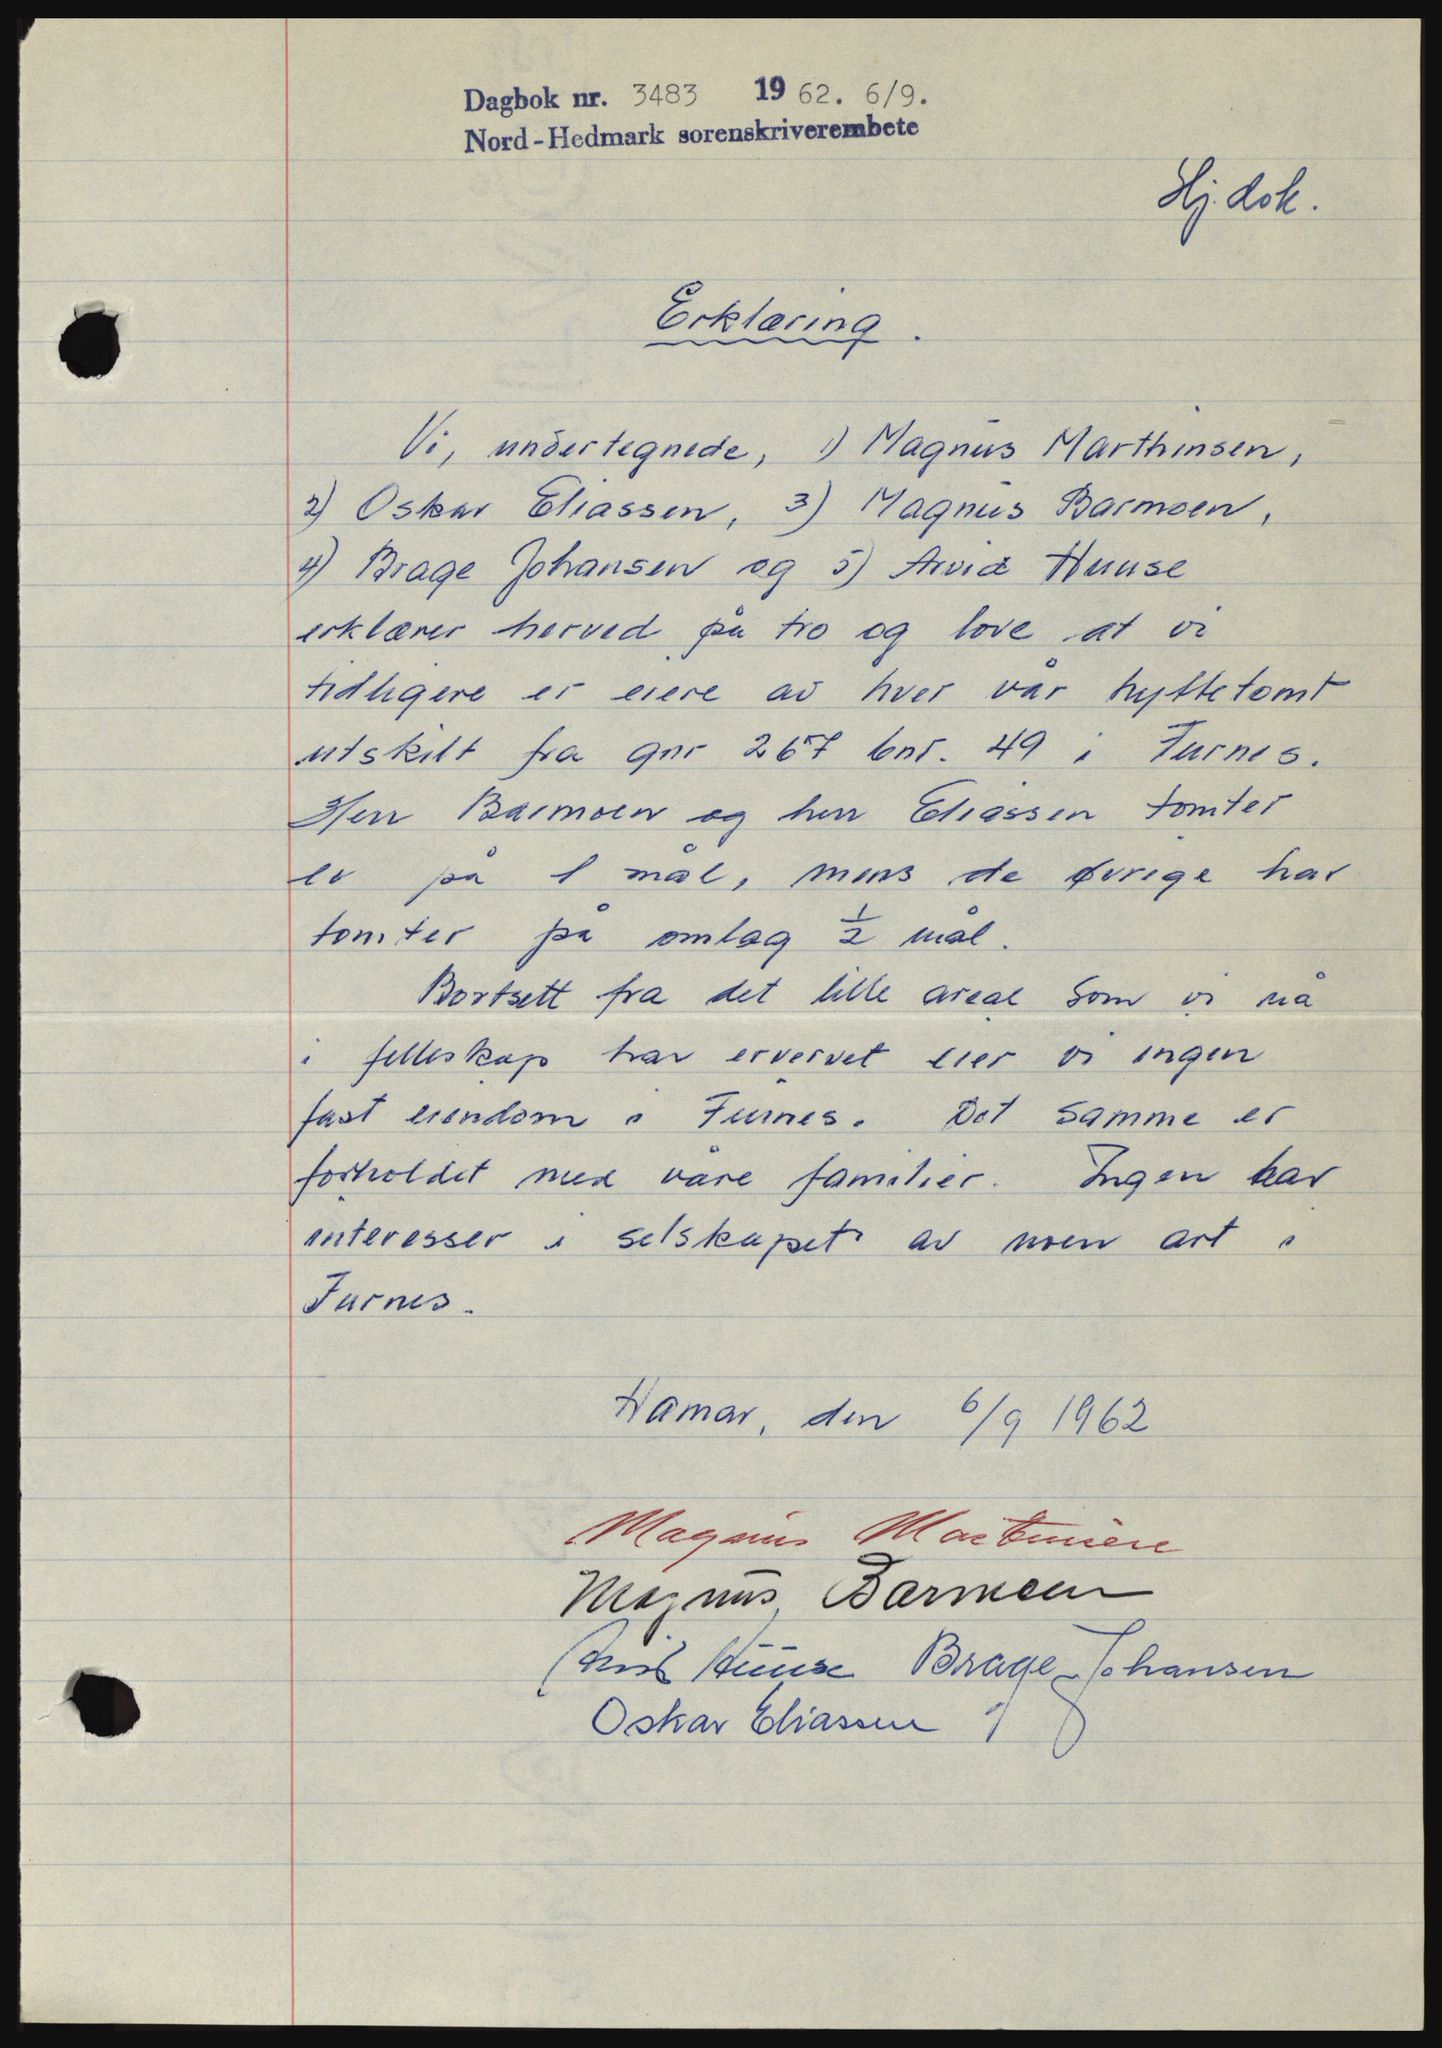 Dagbok nr. 3483 1962. 6/9.
Nord-Hedmark sorenskriverembete
Hj. dok.
Erklæring.
Vi, undertegnede, 1) Magnus Marthinsen,
2) Oskar Eliassen, 3) Magnus Barmoen,
4) Brage Johansen og 5) Arvid Huuse
erklærer herved på tro og love at vi
tidligere er eiere av hver vår hyttetomt
utskilt fra gnr 267 bnr. 49 i Furnes.
Herr Barmoen og herr Eliassen tomter
er på 1 mål, mens de øvrige har
tomter på omlag ½ mål.
Bortsett fra det lille areal som vi nå
i felleskap har ervervet eier vi ingen
fast eiendom i Furnes. Det samme er
forholdet med våre familier. Ingen har
interesser i selskapet av noen art i
Furnes.
Hamar, den 6/9 1962
Magnus Martinsen
Magnus Barmoen
Arvid Huuse Brage Johansen
Oskar Eliassen